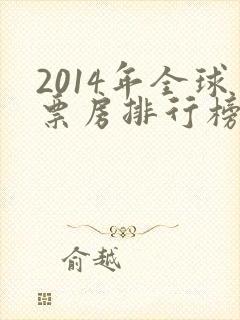 2014年全球
票房排行榜
俞越